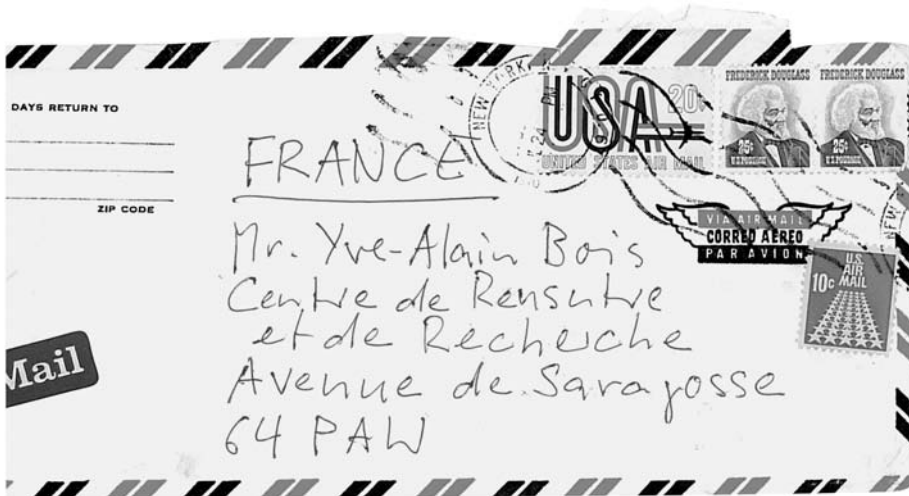 DAYS RETURN TO
ZIP CODE
Mail
NEW YORK, N
24
PM
USA 20c
UNITED STATES AIR MAIL
FREDERICK DOUGLASS
25¢
U.S. POSTAGE
FREDERICK DOUGLASS
25¢
U.S. POSTAGE
VIA AIR MAIL
CORREO AEREO
PAR AVION
NEW
U.S.
AIR
10c MAIL
FRANCE
Mr. Yve-Alain Bois
Centre de Rensutre
et de Recherche
Avenue de Saragosse
64 PAW